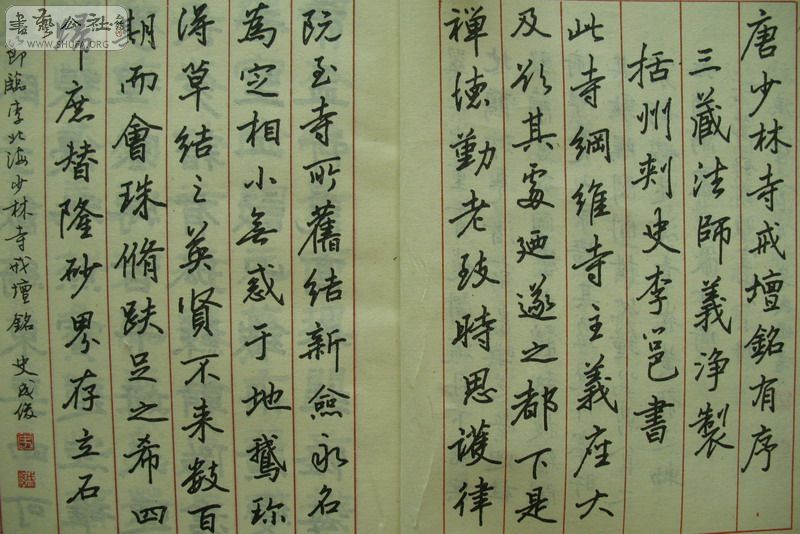 唐少林寺戒壇銘有序
三藏法師義淨製
括州刺史李邕書
此寺綱維寺主義座大
及欲其處廼邀之都下是
禅德勤老跂時思護律
阮至寺所舊結新僉永名
為定相小無惑于地鵝珎
得草結之英賢不来數百
期而會珠脩跌足之希四
師庶替隆砂界存立石
節臨李北海少林寺戒壇銘 史成俊
書藝公社
WWW.SHUFA.ORG